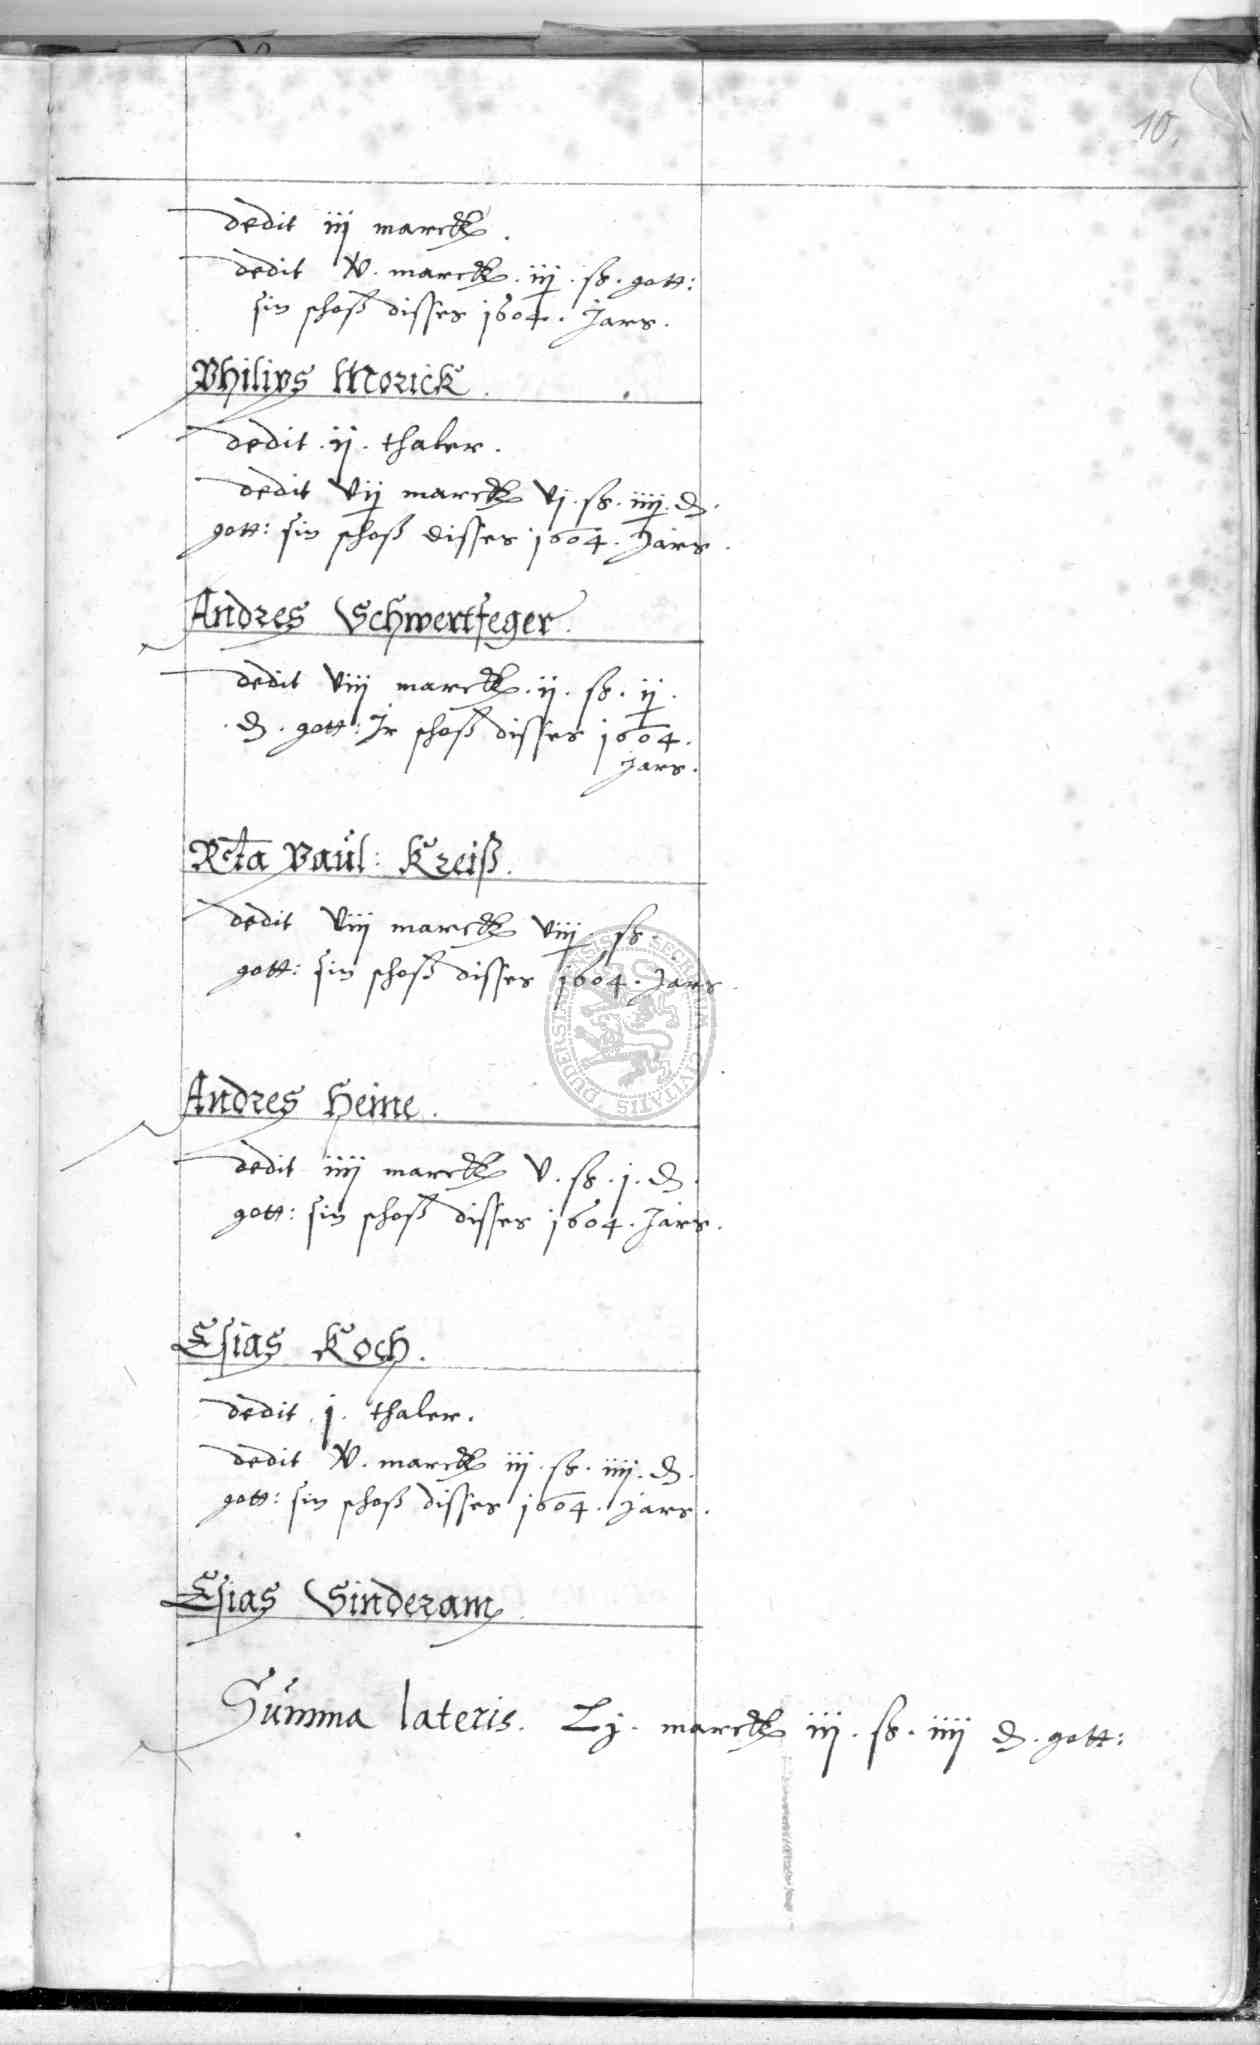 10.
dedit iij marck.
dedit xv. marck. iij. ß. gott:
sin schoß disses 1604. Jars.
Philips Morick.
dedit. ij. thaler.
dedit vij marck vj. ß. iiij. d.
gott: sin schoß disses 1604. Jars.
Andres Schwertfeger.
dedit viij marck. ij. ß. ij.
. d. gott: Jr schoß disses 1604.
Jars.
Rcta Paul: Kreiß.
dedit viij marck viij. ß.
gott: sin schoß disses 1604. Jars.
Andres Heine.
dedit iiij marck v. ß. j. d.
gott: sin schoß disses 1604. Jars.
Esias Koch.
dedit. j. thaler.
dedit xv. marck iij. ß. iiij. d.
gott: sin schoß disses 1604. Jars.
Esias Sinderam
Summa lateris. Lj. marck iij. ß. iiij d. gott:
SECRETUM CIVITATIS DUDERSTADENSIS